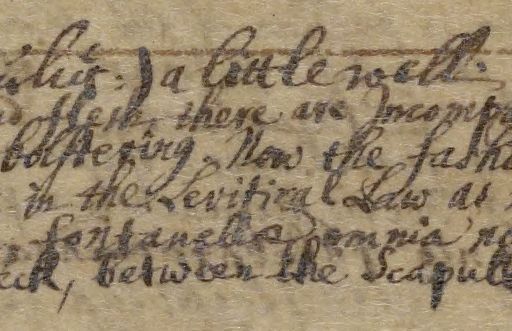 a little well.
flesh there are Incomp
bolstering. Now the fash
in the Levitical Law as
fontanellæ omnia no
eck, between the Scapul